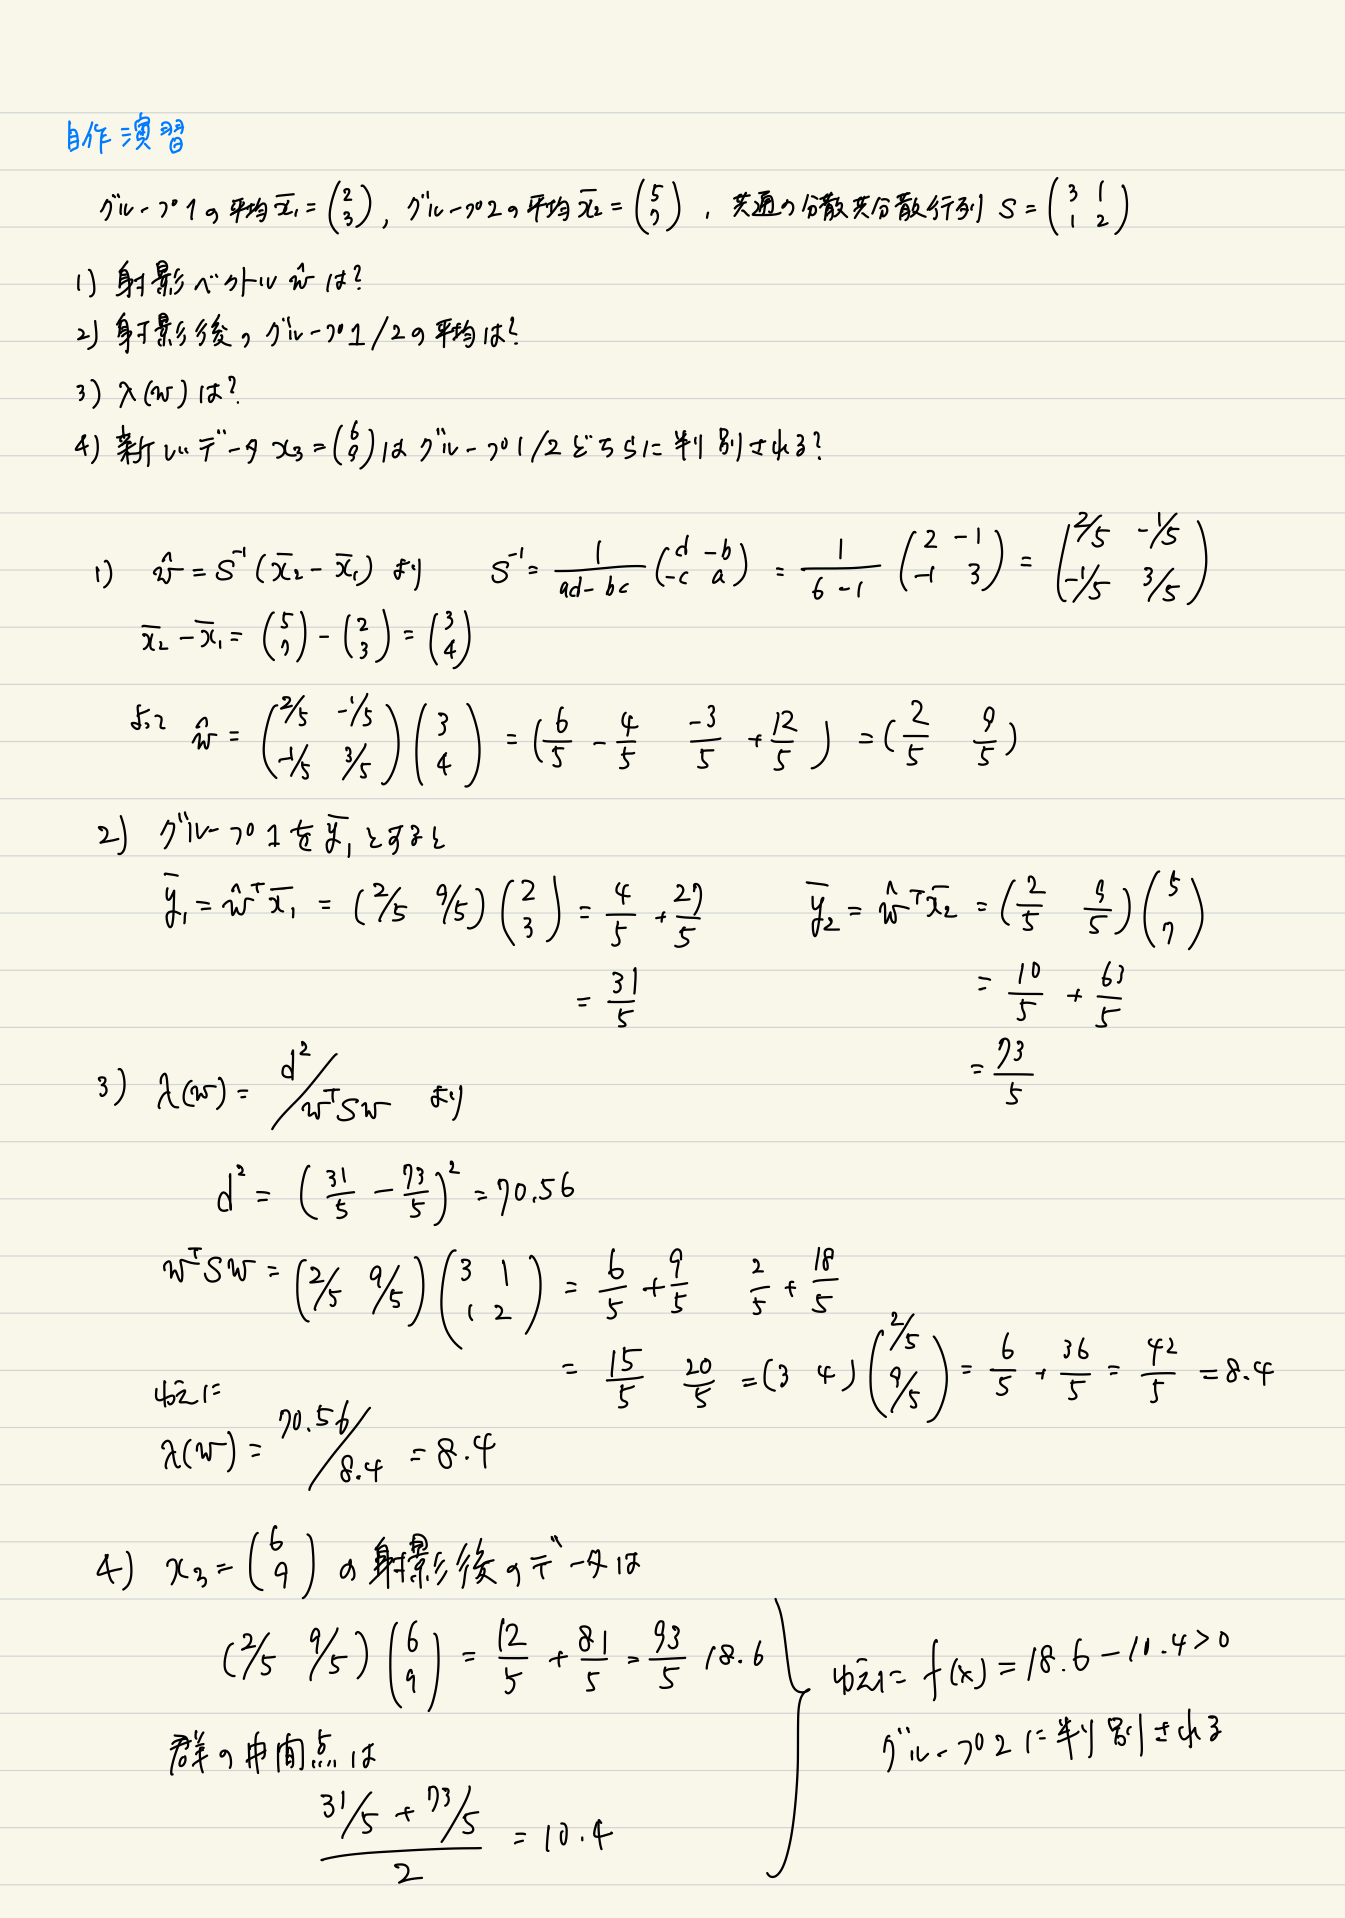 自作演習
グループ1の平均x̄₁=(2 3), グループ2の平均x̄₂=(5 7), 共通の分散共分散行列 S=(3 1 1 2)
1) 射影ベクトルŵは?
2) 射影後のグループ1/2の平均は?
3) λ(w)は?
4) 新しいデータx₃=(6 9)はグループ1/2どちらに判別される?
1) ŵ=S⁻¹(x̄₂-x̄₁) より S⁻¹=1/(ad-bc) (d -b -c a) = 1/(6-1) (2 -1 -1 3) = (2/5 -1/5 -1/5 3/5)
x̄₂-x̄₁=(5 7)-(2 3)=(3 4)
よって ŵ=(2/5 -1/5 -1/5 3/5)(3 4)=(6/5-4/5 -3/5+12/5)=(2/5 9/5)
2) グループ1をȳ₁とすると
ȳ₁=ŵᵀx̄₁=(2/5 9/5)(2 3)=4/5+27/5
=31/5
ȳ₂=ŵᵀx̄₂=(2/5 9/5)(5 7)
=10/5+63/5
=73/5
3) λ(w)=d²/wᵀSw より
d²=(31/5-73/5)²=70.56
wᵀSw=(2/5 9/5)(3 1 1 2)=6/5+9/5 2/5+18/5
=15/5 20/5=(3 4)(2/5 9/5)=6/5+36/5=42/5=8.4
ゆえに
λ(w)=70.56/8.4=8.4
4) x₃=(6 9)の射影後のデータは
(2/5 9/5)(6 9)=12/5+81/5=93/5 18.6
群の中間点は
(31/5+73/5)/2=10.4
ゆえに f(x)=18.6-10.4>0
グループ2に判別される